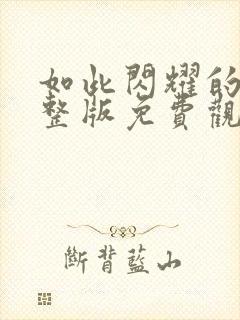 如此閃耀的
整版免費觀
斷背藍山